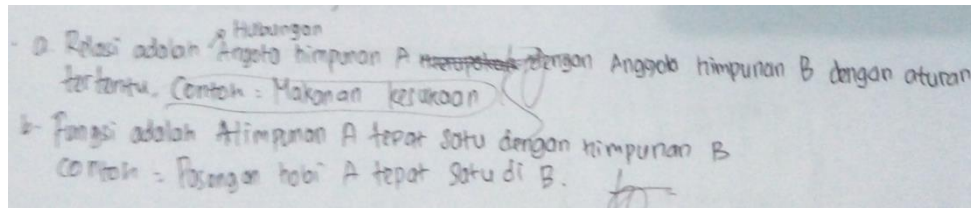 Hubungan
a. Relasi adalah Angota himpunan A dengan Anggota himpunan B dengan aturan
tertentu. Contoh = Makanan kesukaan
b. Fungsi adalah Himpunan A tepat satu dengan himpunan B
contoh = Pasangan hobi A tepat satu di B.